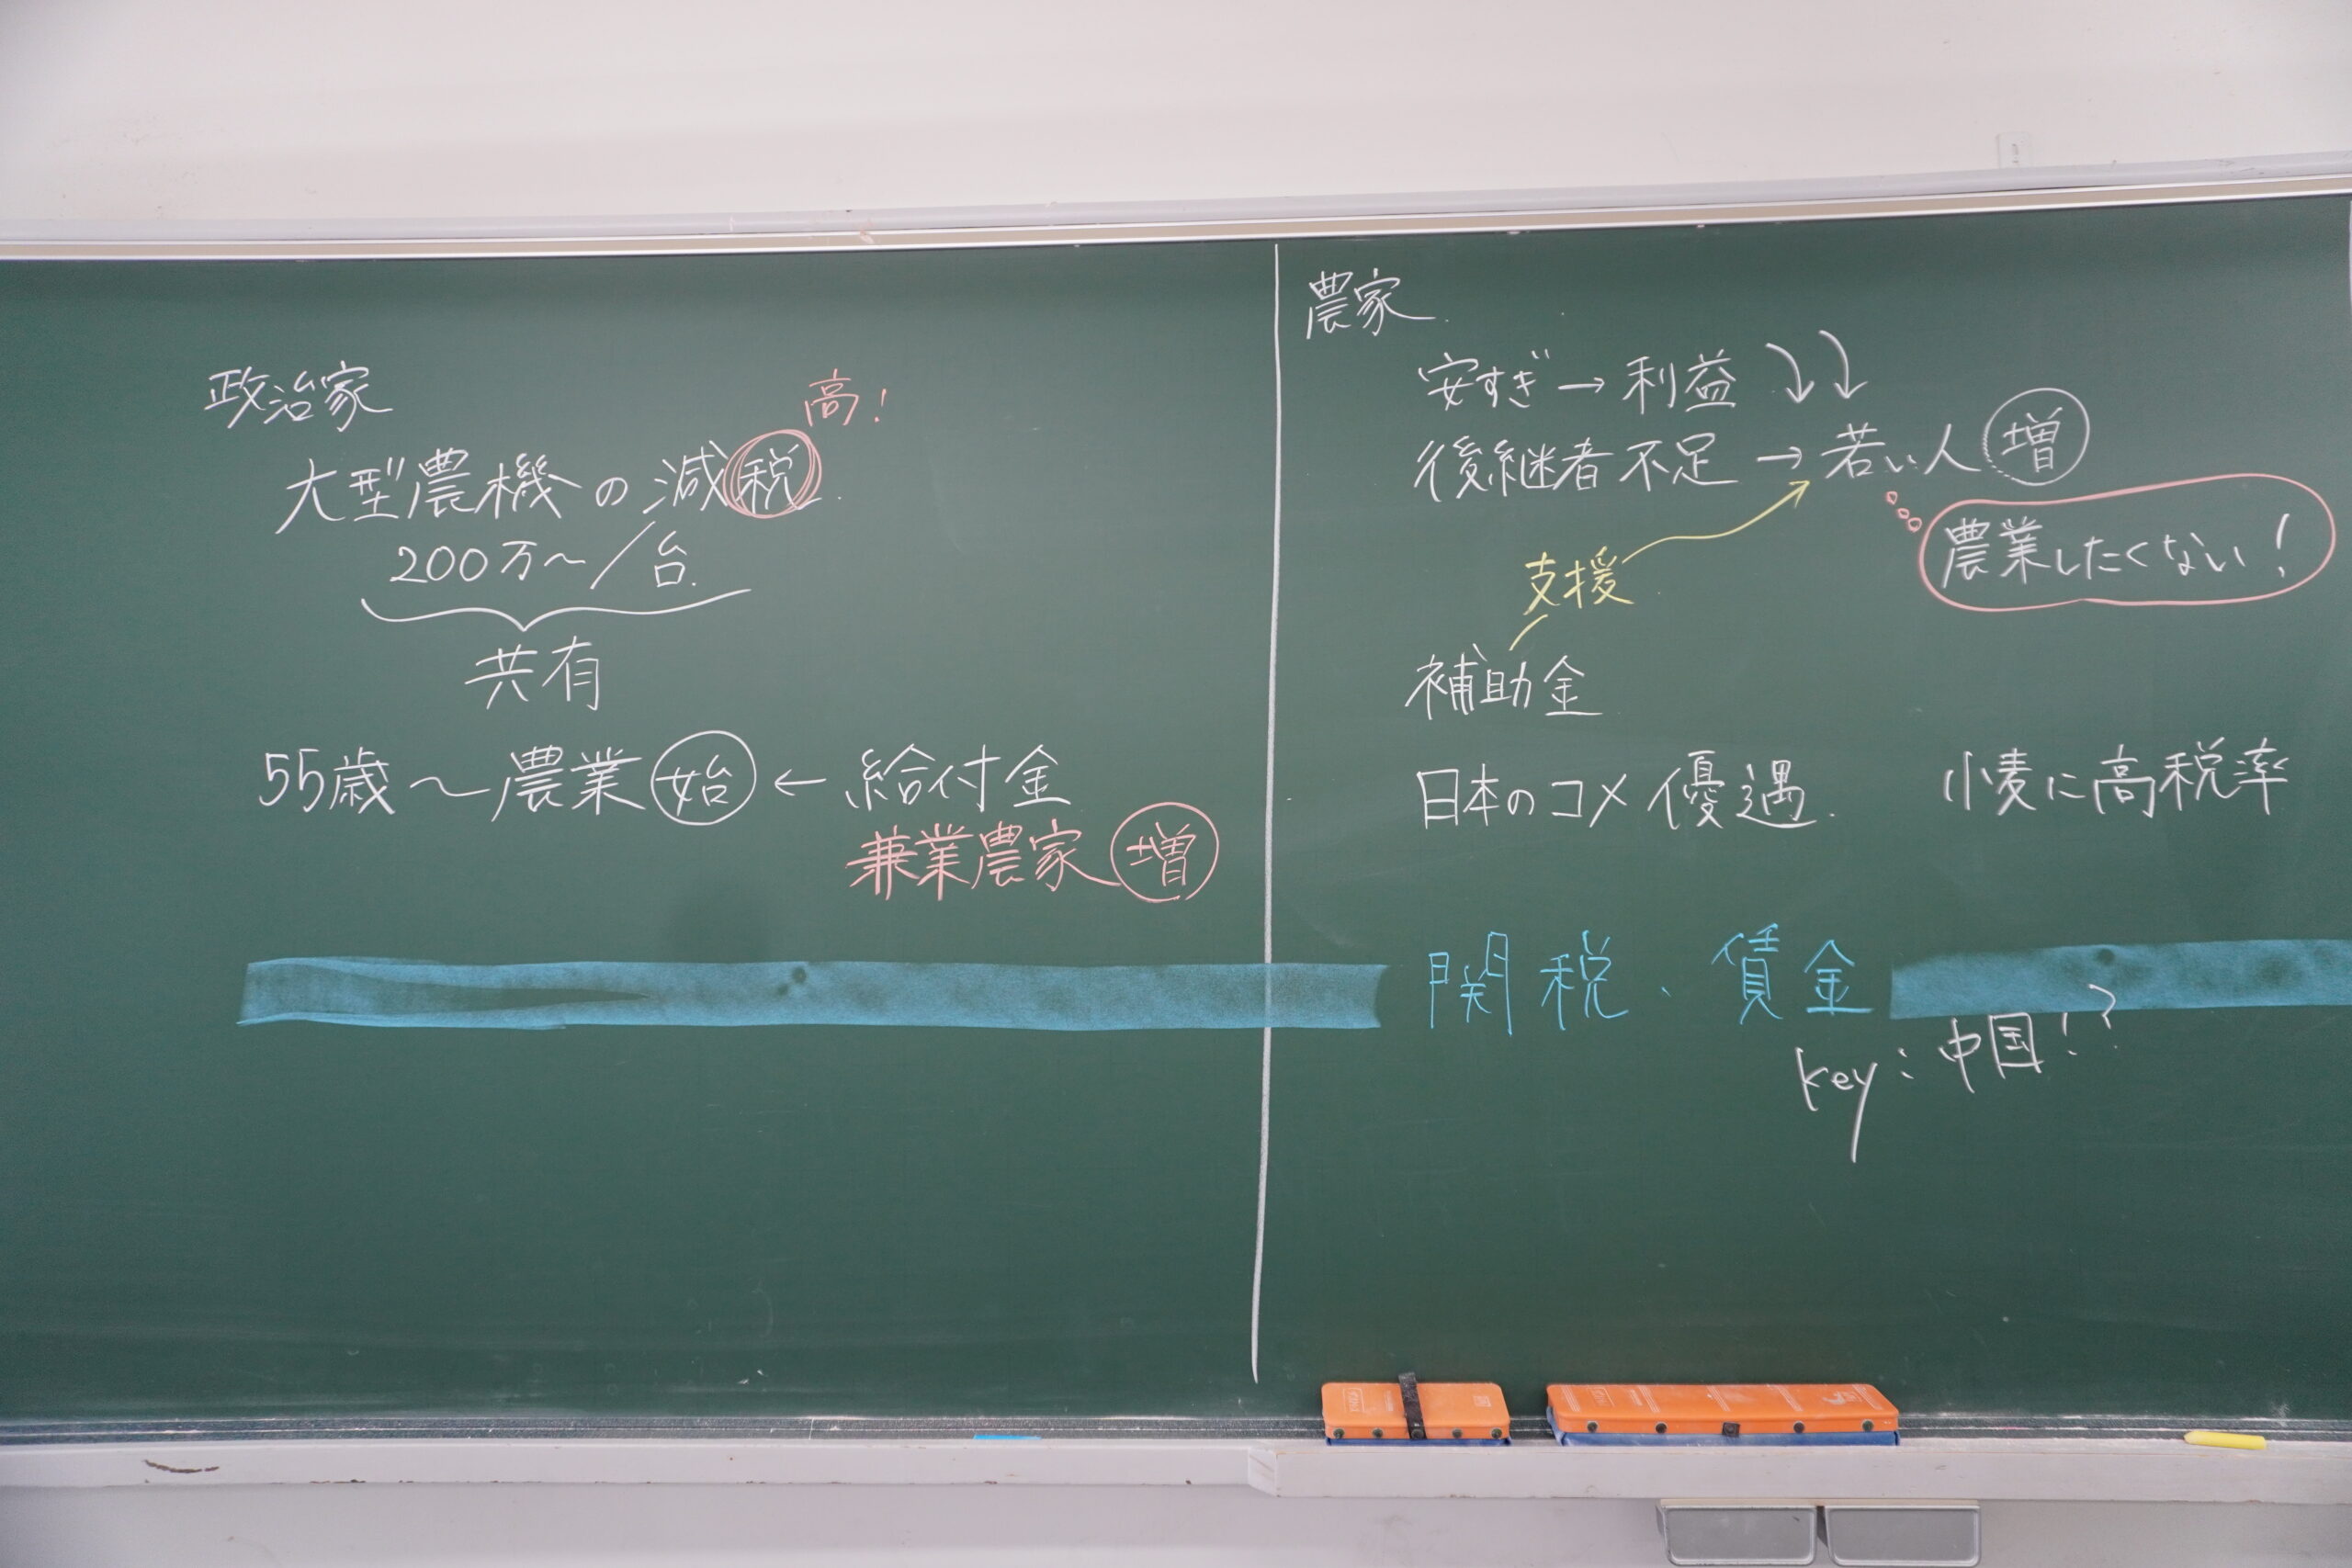 政治家
高!
大型農機の減税.
200万〜/台.
共有
55歳〜農業始←給付金
兼業農家増
農家.
安すぎ→利益⤵⤵
後継者不足→若い人増
農業したくない!
支援
補助金
日本のコメ優遇. 小麦に高税率
関税、賃金
key:中国!?